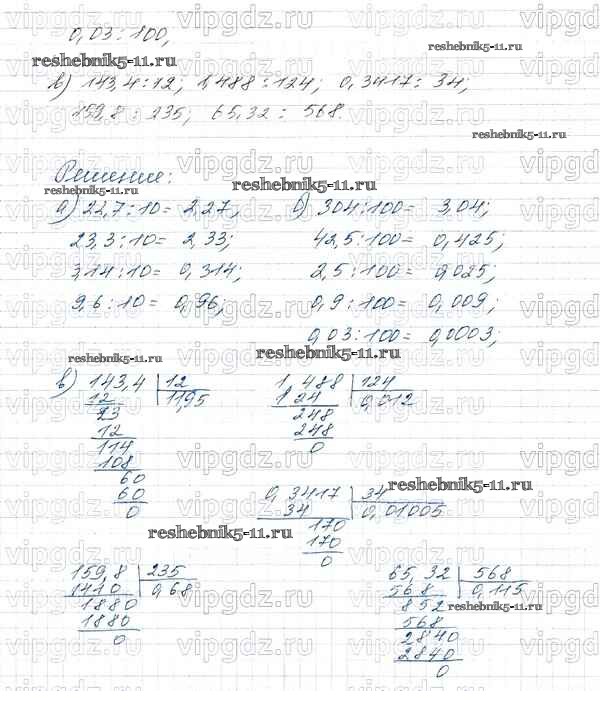 0,03:100,
в) 143,4:12; 1,488:124; 0,3417:34;
159,8:235; 65,32:568.
Решение:
а) 22,7:10= 2,27;
23,3:10= 2,33;
3,14:10= 0,314;
9,6:10= 0,96;
б) 304:100= 3,04;
42,5:100= 0,425;
2,5:100= 0,025;
0,9:100= 0,009;
0,03:100= 0,0003;
в) 143,4 | 12
12 | 11,95
23
12
114
108
60
60
0
1,488 | 124
124 | 0,012
248
248
0
0,3417 | 34
34 | 0,01005
170
170
0
159,8 | 235
1410 | 0,68
1880
1880
0
65,32 | 568
568 | 0,115
852
568
2840
2840
0
vipgdz.ru
reshebnik5-11.ru